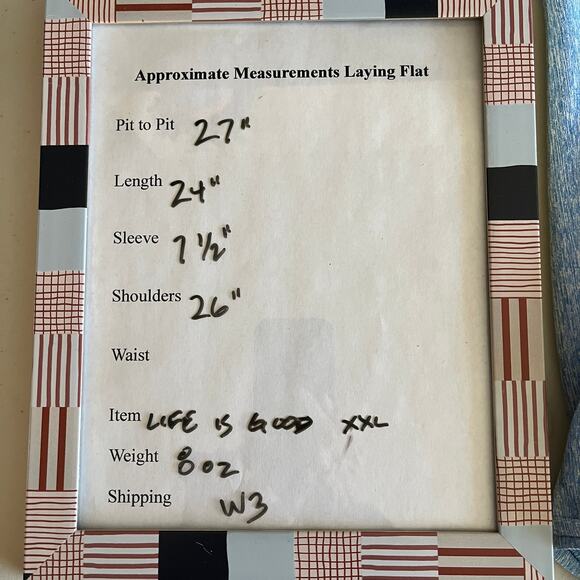 Approximate Measurements Laying Flat
Pit to Pit 27"
Length 24"
Sleeve 7 1/2"
Shoulders 26"
Waist
Item LIFE IS GOOD XXL
Weight 8 OZ
Shipping W3